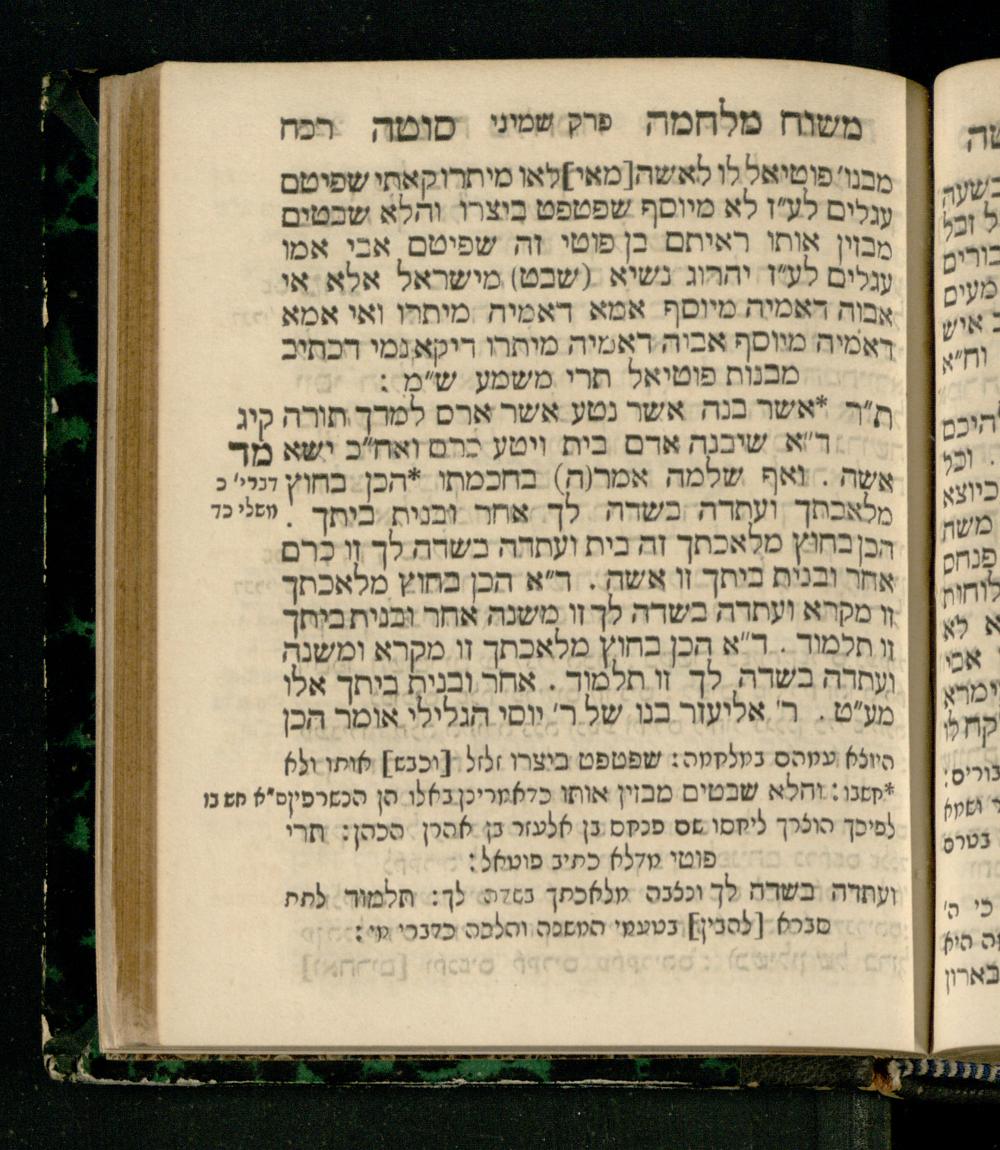 משוח מלחמה פרק שמיני סוטה רכח
מבנו׳ פוטיאל לו לאשה [מאי] לאו מיתרו קאתי שפיטם
עגלים לע״ז לא מיוסף שפטפט ביצרו והלא שבטים
מבזין אותו ראיתם בן פוטי זה שפיטם אבי אמו
עגלים לע״ז יהרוג נשיא (שבט) מישראל אלא אי
אבוה דאמיה מיוסף אמא דאמיה מיתרו ואי אמא
דאמיה מיוסף אביה דאמיה מיתרו דיקא נמי דכתיב
מבנות פוטיאל תרי משמע ש״מ :
ת״ר *אשר בנה אשר נטע אשר ארס למדך תורה קיג
ד״א שיבנה אדם בית ויטע כרם ואח״כ ישא מד
אשה . ואף שלמה אמר(ה) בחכמתו *הכן בחוץ דברי׳ כ
מלאכתך ועתדה בשדה לך אחר ובנית ביתך . משלי כד
הכן בחוץ מלאכתך זה בית ועתדה בשדה לך זו כרם
אחר ובנית ביתך זו אשה . ד״א הכן בחוץ מלאכתך
זו מקרא ועתדה בשדה לך זו משנה אחר ובנית ביתך
זו תלמוד . ד״א הכן בחוץ מלאכתך זו מקרא ומשנה
ועתדה בשדה לך זו תלמוד . אחר ובנית ביתך אלו
מע״ט . ר׳ אליעזר בנו של ר׳ יוסי הגלילי אומר הכן
היוצא עמהם במלחמה : שפטפט ביצרו זלזל [וכבש] אותו ולא
*חשבו : והלא שבטים מבזין אותו כדאמרינן באלו הן הנשרפין ס״א חש בו
לפיכך הוצרך ליחסו שם פנחס בן אלעזר בן אהרן הכהן : תרי
פוטי מדלא כתיב פוטאל :
ועתדה בשדה לך ונצבה מלאכתך בשדה לך : תלמוד לתת
סברא [להבין] בטעמי המשנה והלכה כדברי מי :